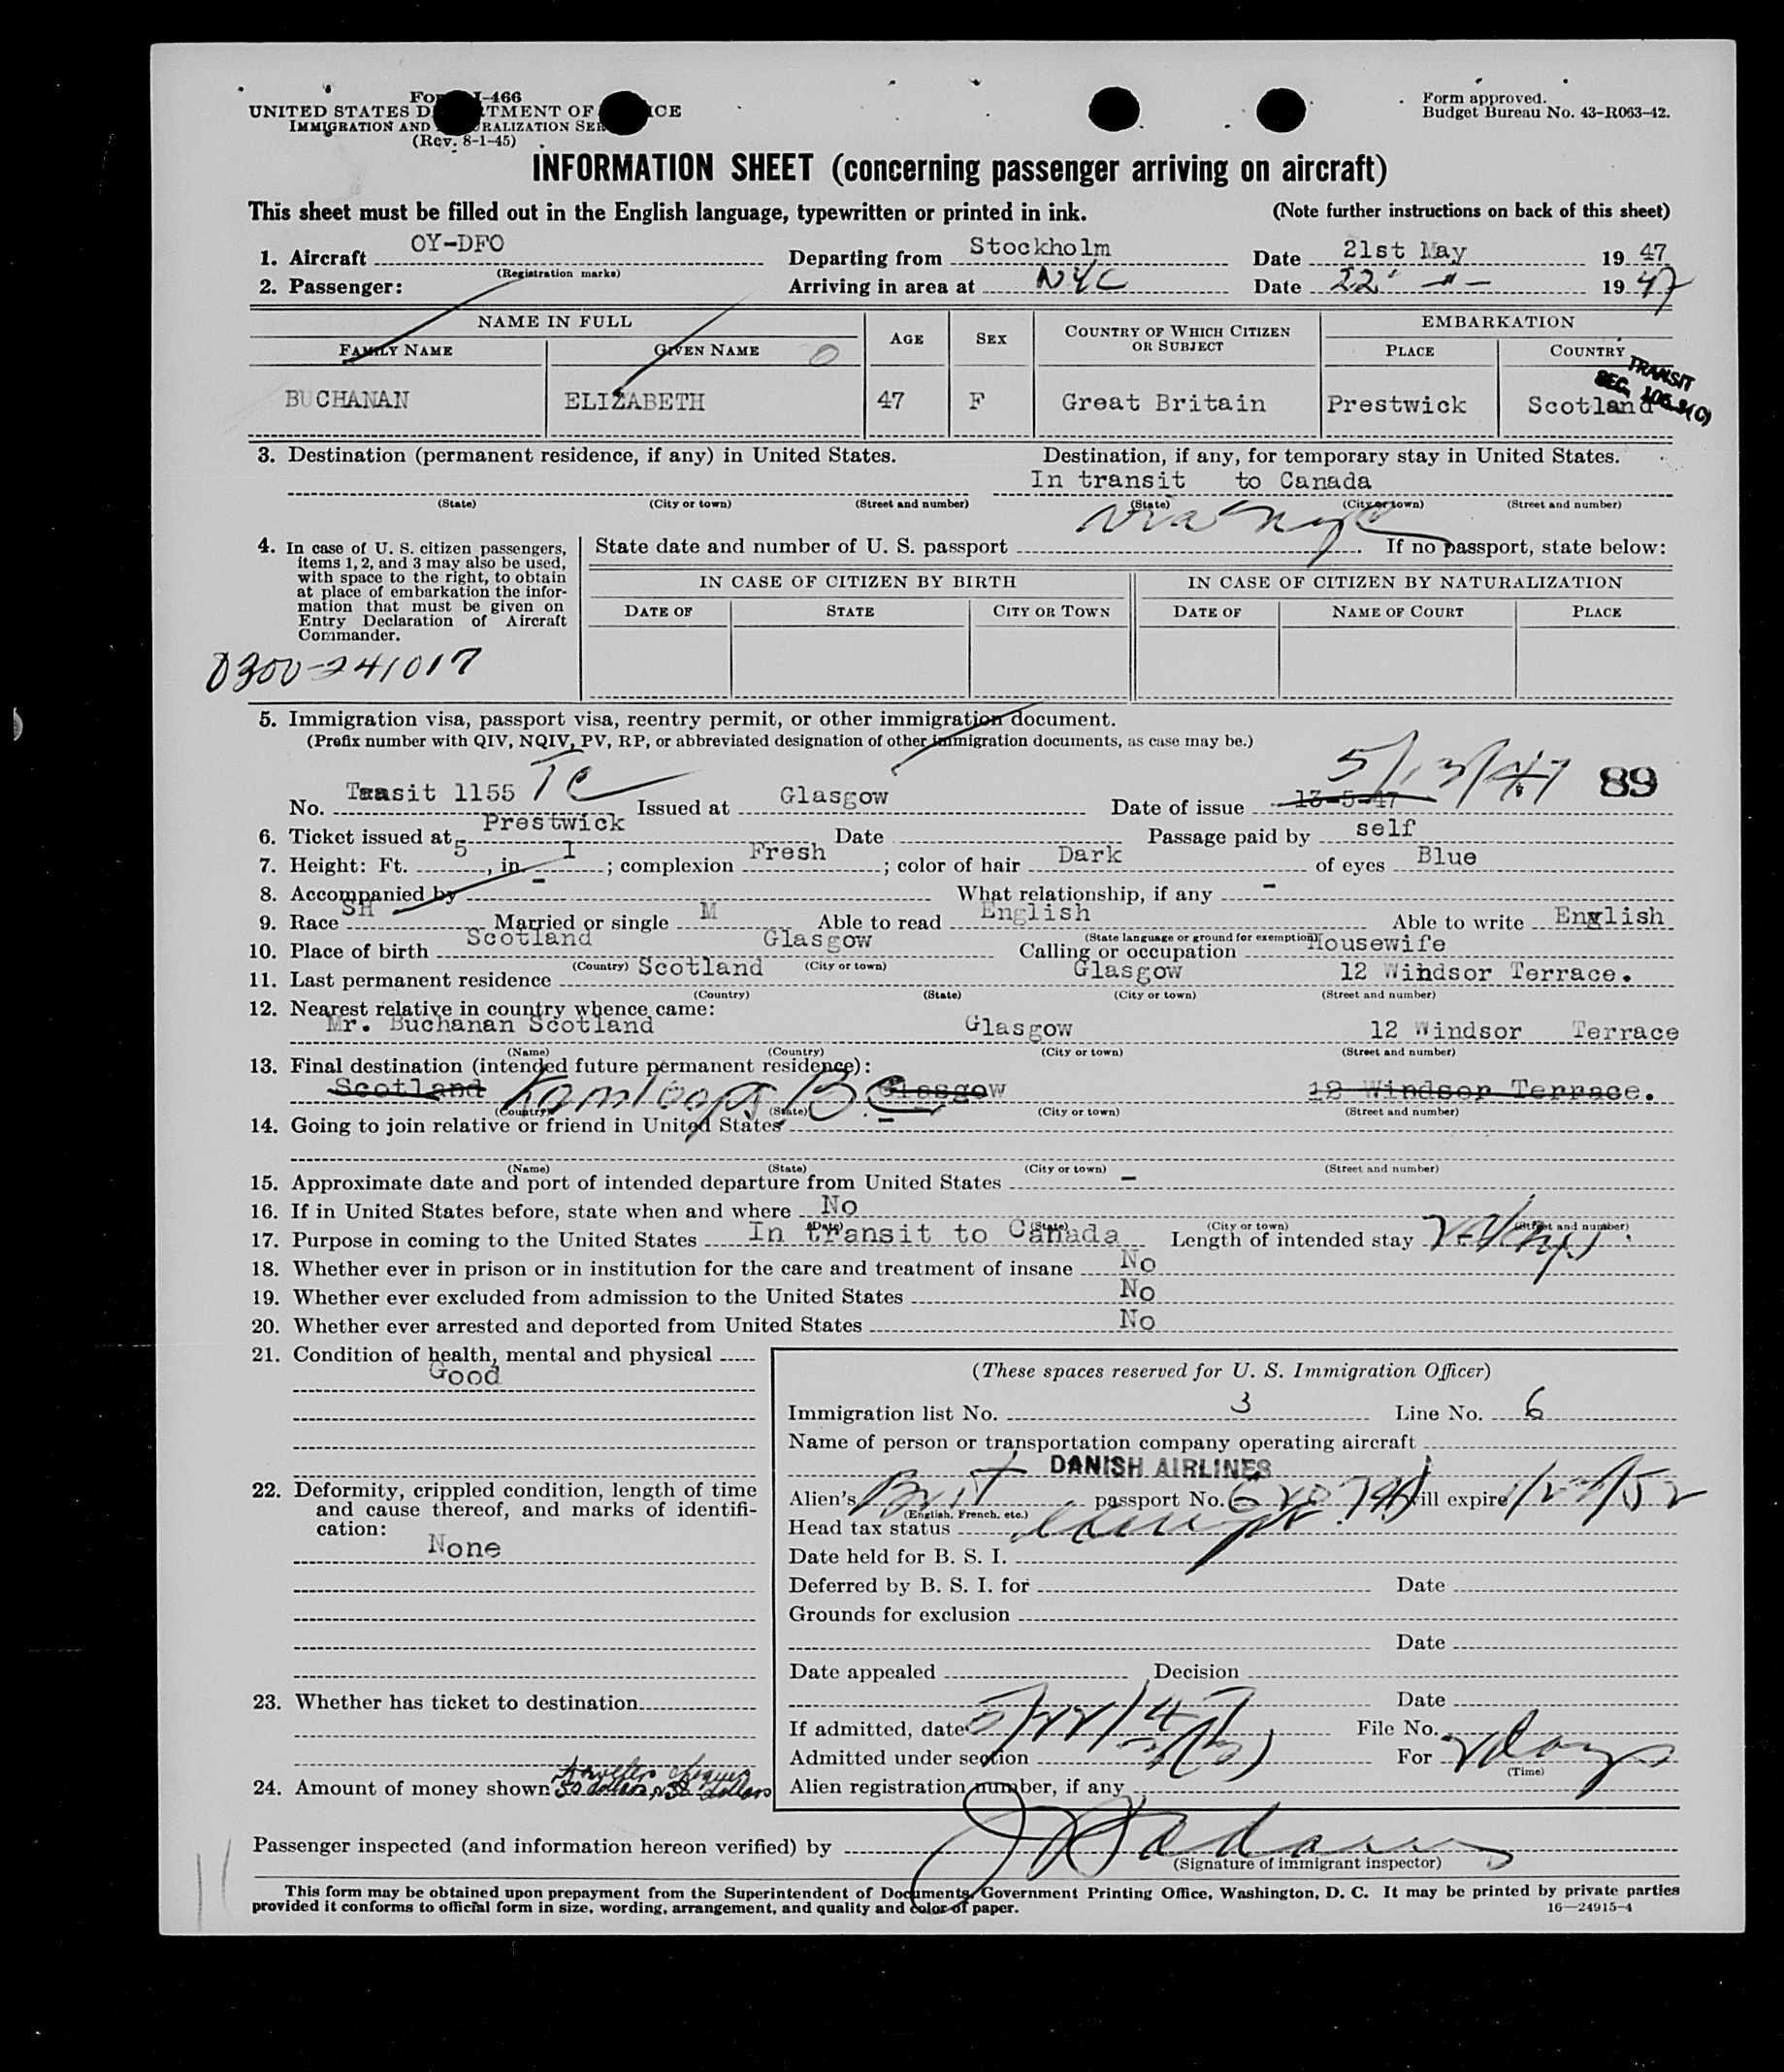 Form I-466
UNITED STATES DEPARTMENT OF JUSTICE
IMMIGRATION AND NATURALIZATION SERVICE
(Rev. 8-1-45)
Form approved.
Budget Bureau No. 43-R063-42.
INFORMATION SHEET (concerning passenger arriving on aircraft)
This sheet must be filled out in the English language, typewritten or printed in ink. (Note further instructions on back of this sheet)
1. Aircraft OY-DFO Departing from Stockholm Date 21st May 19 47
(Registration marks)
2. Passenger: Arriving in area at NYC Date 22 -"- 19 47
NAME IN FULL AGE SEX COUNTRY OF WHICH CITIZEN OR SUBJECT EMBARKATION
FAMILY NAME GIVEN NAME PLACE COUNTRY
TRANSIT
BUCHANAN ELIZABETH 47 F Great Britain Prestwick Scotland
3. Destination (permanent residence, if any) in United States. Destination, if any, for temporary stay in United States.
In transit to Canada
(State) (City or town) (Street and number) (State) (City or town) (Street and number)
via nyc
4. In case of U. S. citizen passengers, items 1, 2, and 3 may also be used, with space to the right, to obtain at place of embarkation the information that must be given on Entry Declaration of Aircraft Commander.
State date and number of U. S. passport . If no passport, state below:
IN CASE OF CITIZEN BY BIRTH IN CASE OF CITIZEN BY NATURALIZATION
DATE OF STATE CITY OR TOWN DATE OF NAME OF COURT PLACE
0300-241017
5. Immigration visa, passport visa, reentry permit, or other immigration document.
(Prefix number with QIV, NQIV, PV, RP, or abbreviated designation of other immigration documents, as case may be.)
TC 5/13/47 89
No. Trasit 1155 Issued at Glasgow Date of issue 13-5-47
6. Ticket issued at Prestwick Date Passage paid by self
7. Height: Ft. 5, in. I; complexion Fresh; color of hair Dark of eyes Blue
8. Accompanied by - What relationship, if any -
9. Race SH Married or single M Able to read English Able to write English
(State language or ground for exemption)
10. Place of birth Scotland Glasgow Calling or occupation Housewife
(Country) (City or town)
11. Last permanent residence Scotland Glasgow 12 Windsor Terrace.
(Country) (State) (City or town) (Street and number)
12. Nearest relative in country whence came:
Mr. Buchanan Scotland Glasgow 12 Windsor Terrace
(Name) (Country) (City or town) (Street and number)
13. Final destination (intended future permanent residence):
Scotland Kamloops BC Glasgow 12 Windsor Terrace.
(Country) (State) (City or town) (Street and number)
14. Going to join relative or friend in United States -
(Name) (State) (City or town) (Street and number)
15. Approximate date and port of intended departure from United States -
16. If in United States before, state when and where No
(Date) (State) (City or town) (Street and number)
17. Purpose in coming to the United States In transit to Canada Length of intended stay 2 days
18. Whether ever in prison or in institution for the care and treatment of insane No
19. Whether ever excluded from admission to the United States No
20. Whether ever arrested and deported from United States No
21. Condition of health, mental and physical
Good
22. Deformity, crippled condition, length of time and cause thereof, and marks of identification:
None
23. Whether has ticket to destination
travellers cheques
24. Amount of money shown 50 dollars
(These spaces reserved for U. S. Immigration Officer)
Immigration list No. 3 Line No. 6
Name of person or transportation company operating aircraft
DANISH AIRLINES
Alien's Brit passport No. will expire
(English, French, etc.)
Head tax status exempt
Date held for B. S. I.
Deferred by B. S. I. for Date
Grounds for exclusion
Date
Date appealed Decision
Date
If admitted, date 5/22/47 File No.
Admitted under section 3(3) For 2 Days
(Time)
Alien registration number, if any
Passenger inspected (and information hereon verified) by
(Signature of immigrant inspector)
This form may be obtained upon prepayment from the Superintendent of Documents, Government Printing Office, Washington, D. C. It may be printed by private parties
provided it conforms to official form in size, wording, arrangement, and quality and color of paper.
16—24915-4